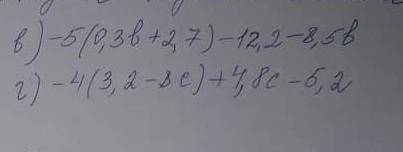 в) -5(0,3в+2,7)-12,2-8,5в
г) -4(3,2-8с)+4,8с-5,2